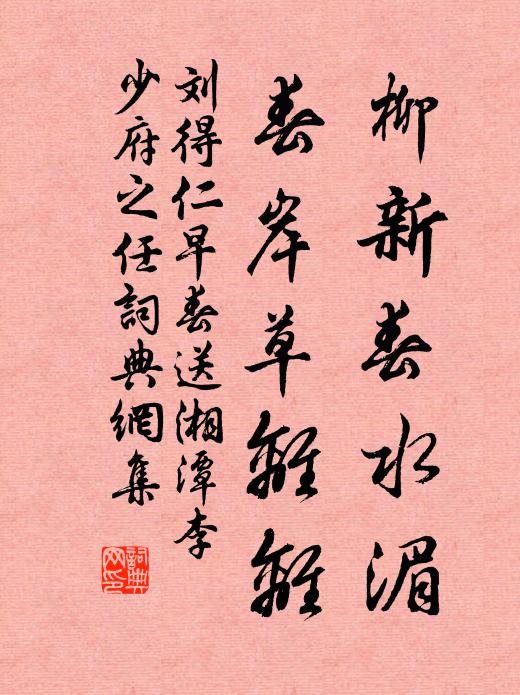 柳新春水湄
春岸草離離
刘得仁早春送湘潭李
少府之任詞典網集
詞典網印